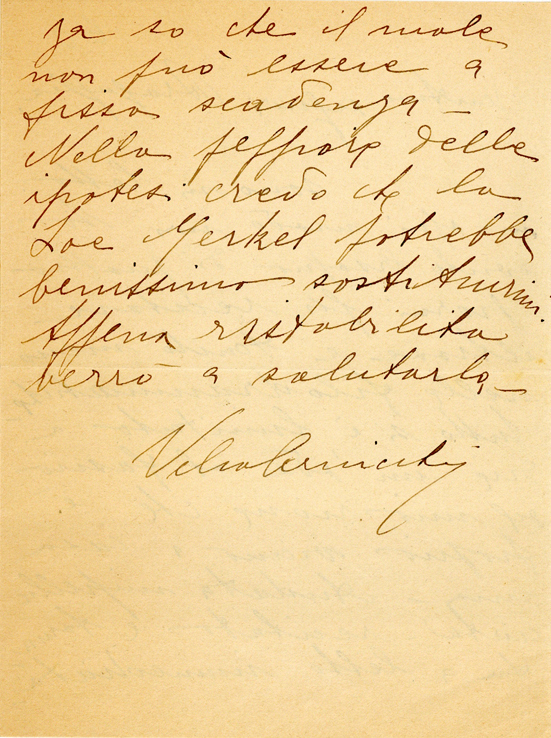 ja so che il male
non può essere a
fissa scadenza —
Nella peggiore delle
ipotesi credo che la
Merkel potrebbe
benissimo sostituirmi.
Appena ristabilita
verrò a salutarla —